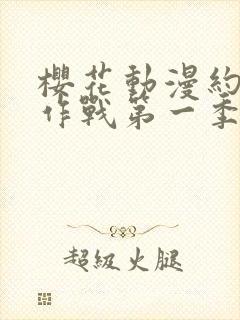 櫻花動漫約
作戰第一季
超級火腿